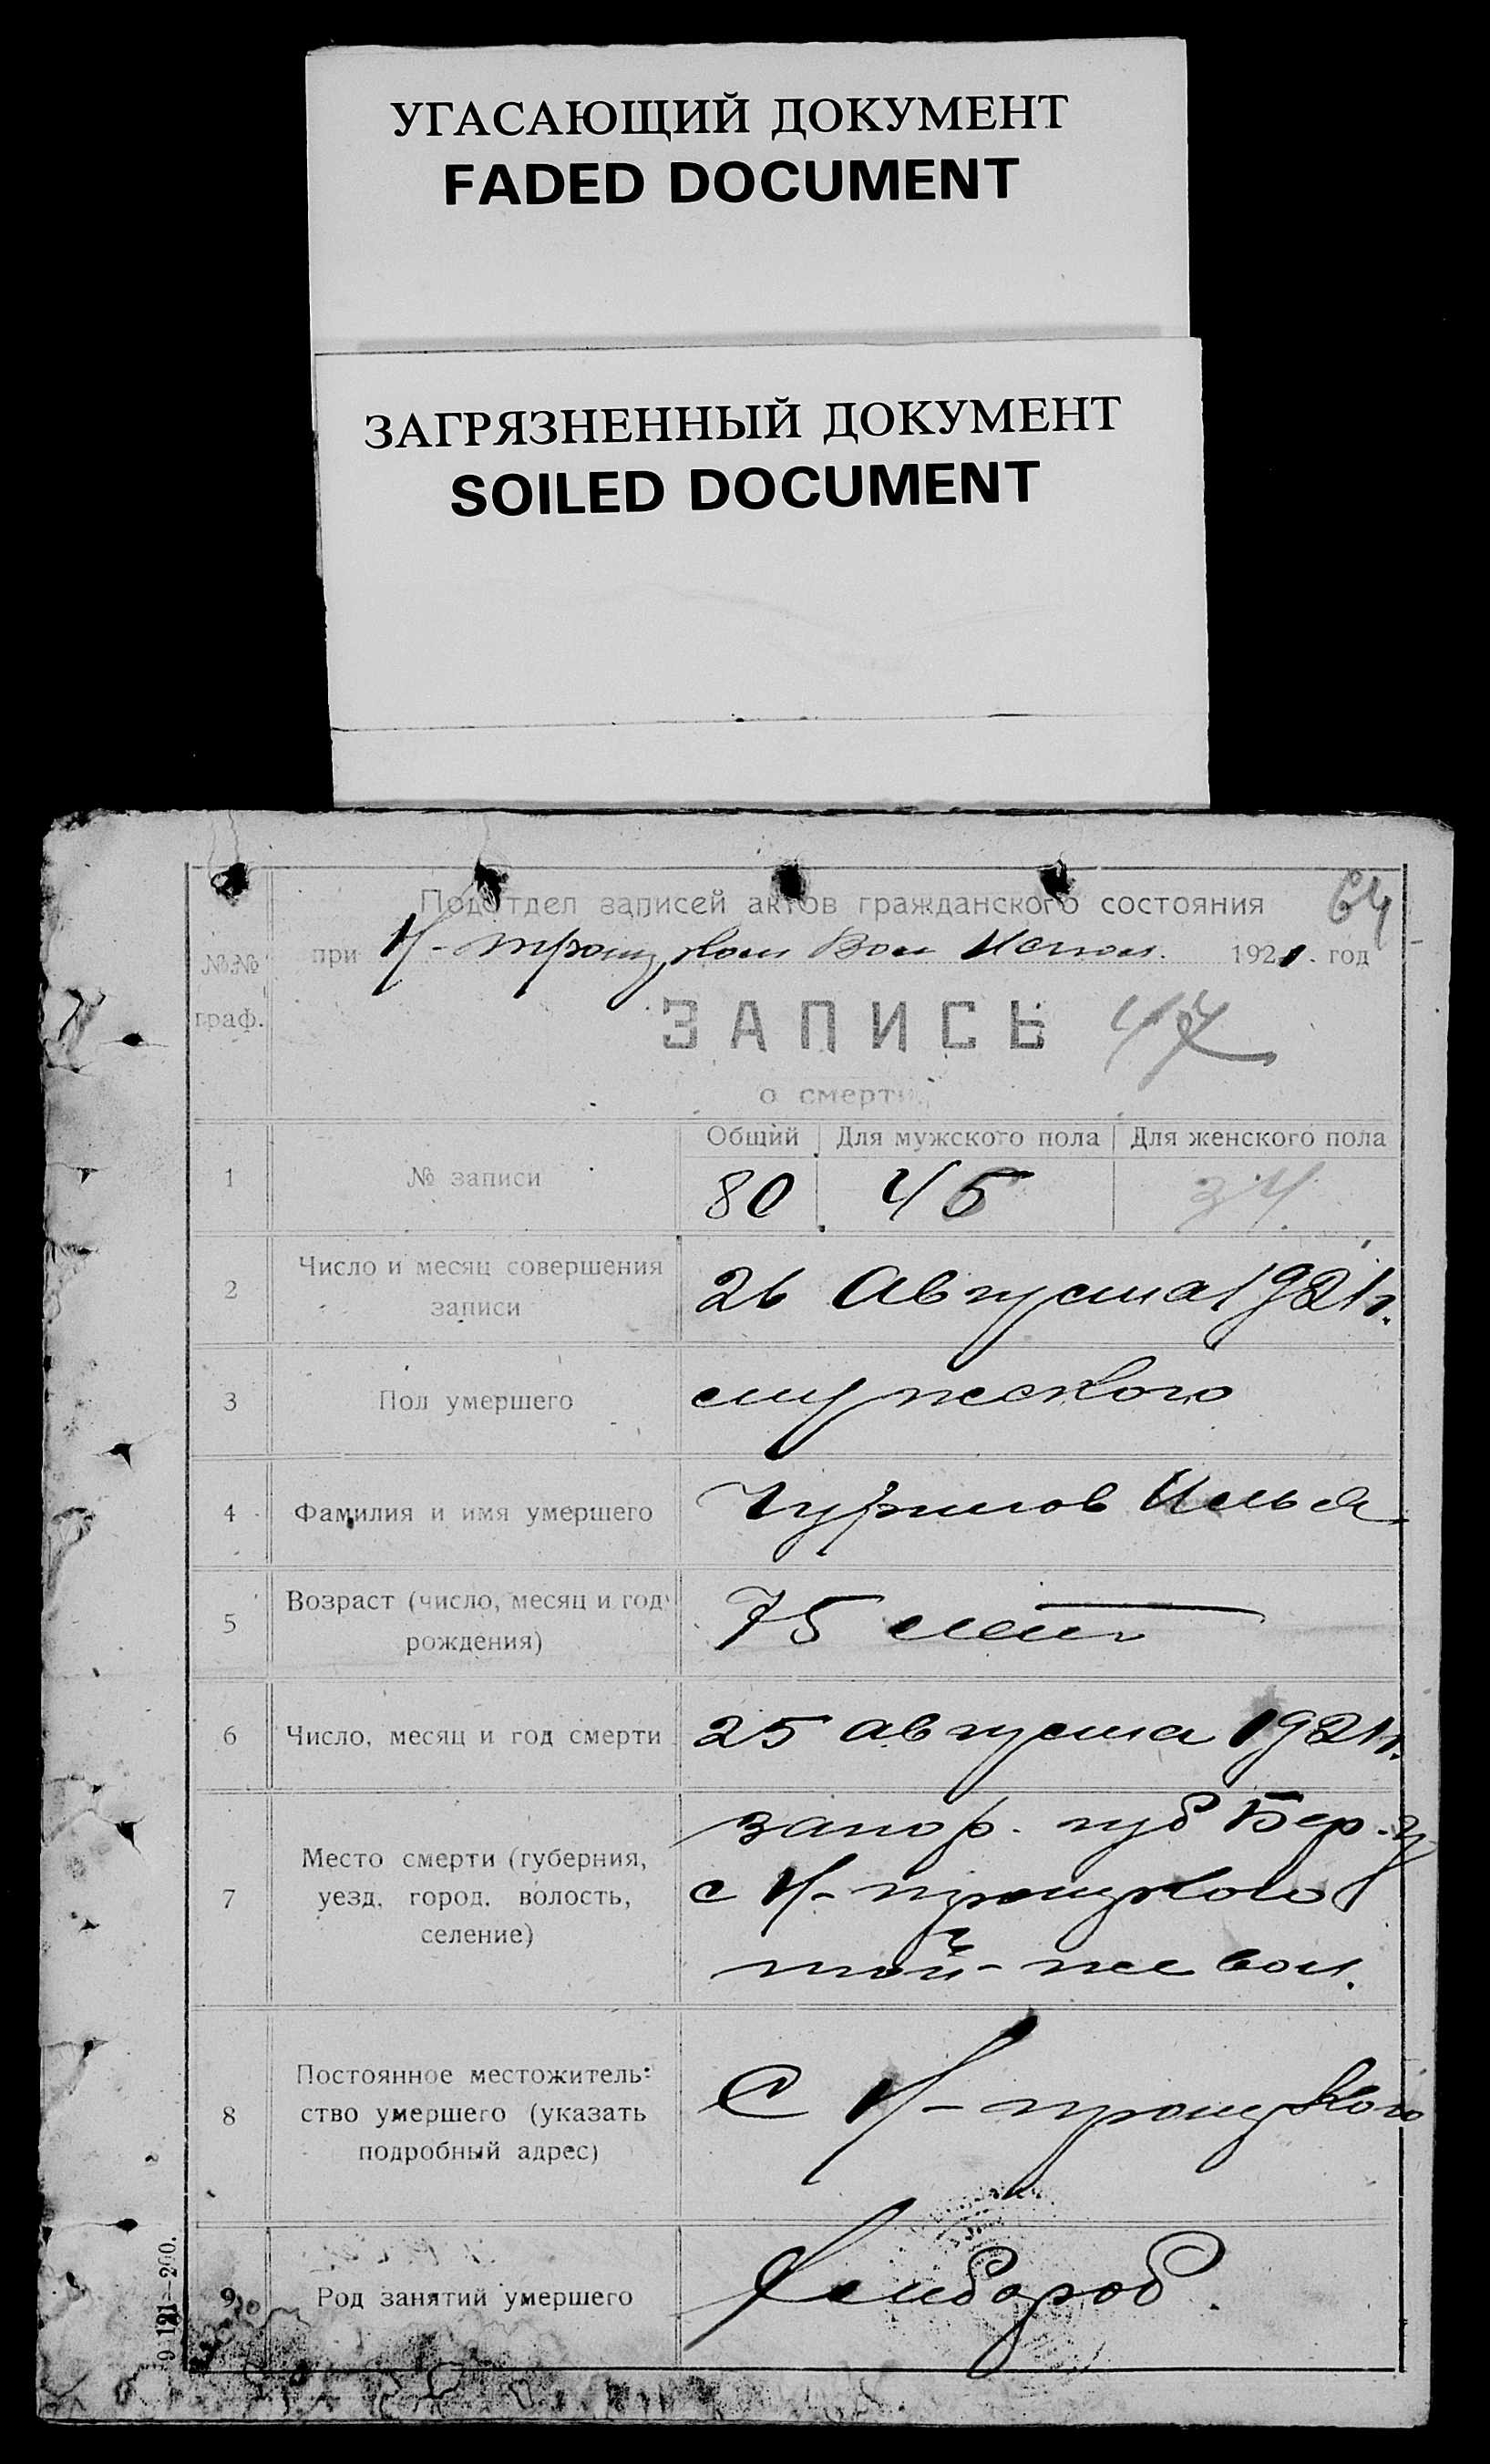 УГАСАЮЩИЙ ДОКУМЕНТ
FADED DOCUMENT
ЗАГРЯЗНЕННЫЙ ДОКУМЕНТ
SOILED DOCUMENT
64
Подотдел записей актов гражданского состояния
при Н-троицком Вол Испол. 1921. год
№№
граф.
ЗАПИСЬ 47
о смерти
Общий Для мужского пола Для женского пола
1 № записи 80 45 34
2 Число и месяц совершения
записи
26 Августа 1921 г.
3 Пол умершего мужского
4 Фамилия и имя умершего Илья
5 Возраст (число, месяц и год
рождения)
75 лет
6 Число, месяц и год смерти 25 августа 1921 г.
7 Место смерти (губерния,
уезд, город, волость,
селение)
запор. губ Бер. у
с Н-троицкого
той-же вол.
8 Постоянное местожитель-
ство умершего (указать
подробный адрес)
С Н-троицкого
9 Род занятий умершего Хлибороб.